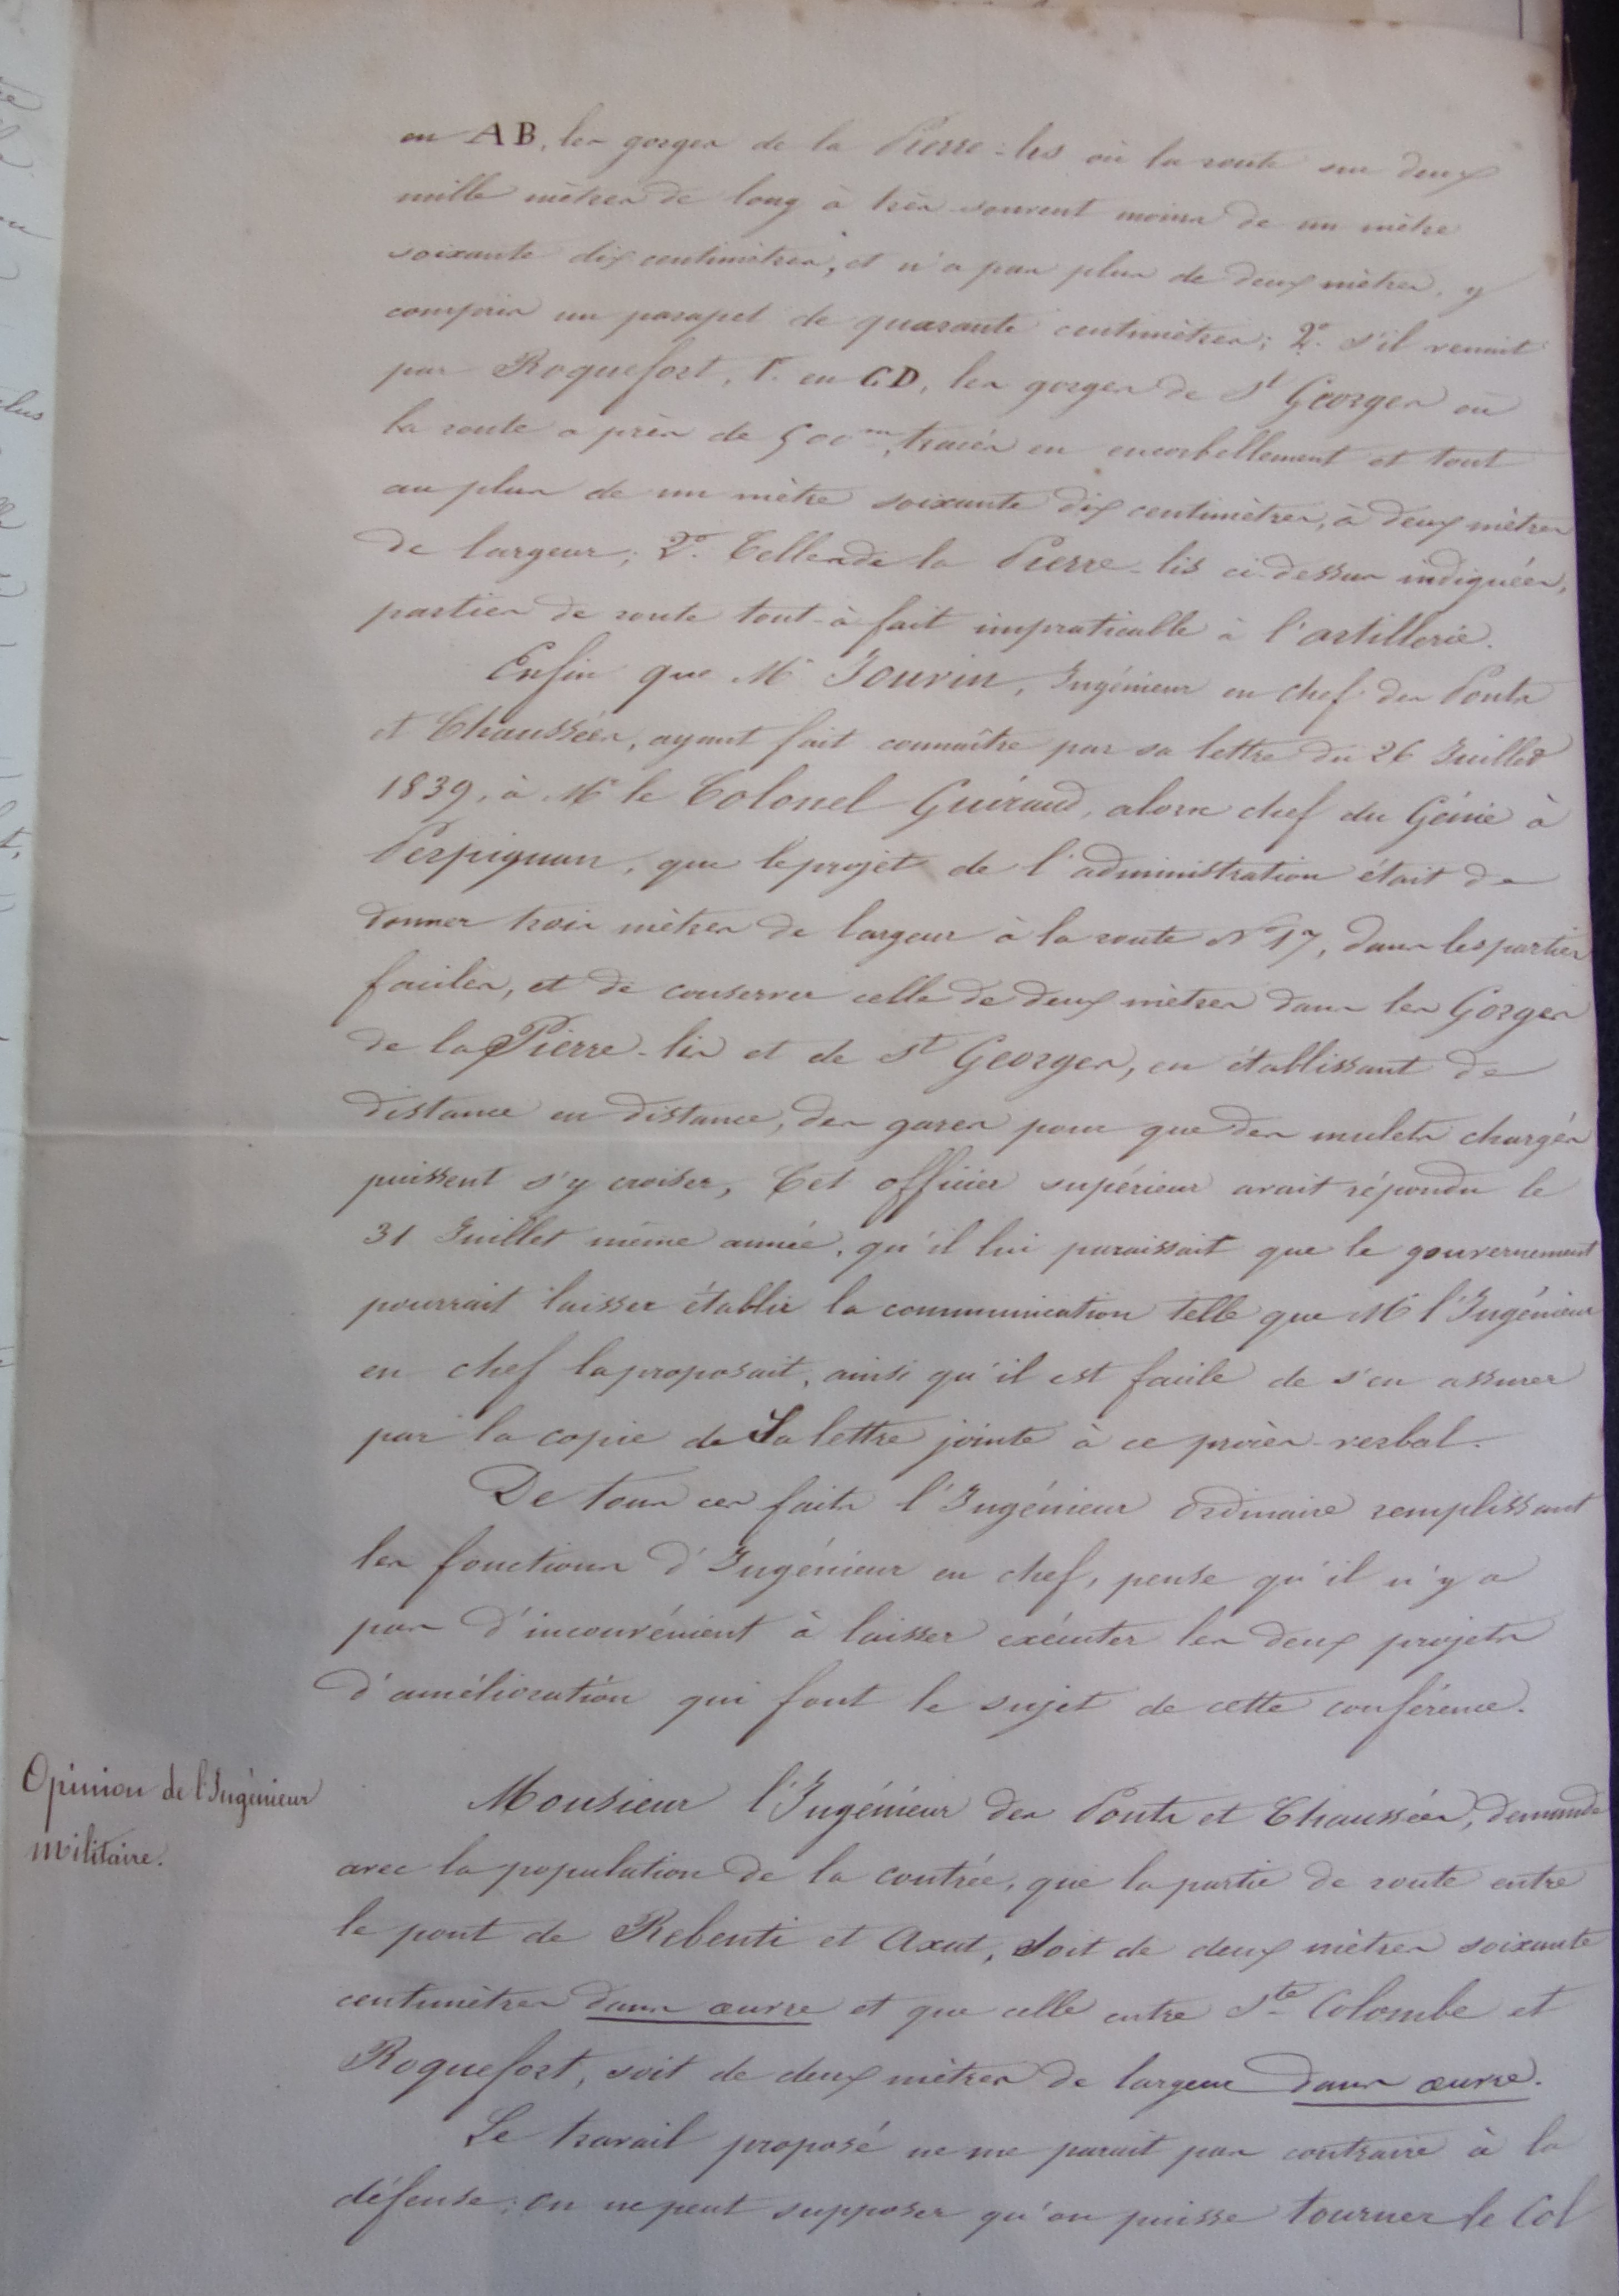 en AB, les gorges de la Pierre-lis où la route sur deux
mille mètres de long à très souvent moins de un mètre
soixante dix centimètres, et n'a pas plus de deux mètres, y
compris un parapet de quarante centimètres; 2° s'il venait
par Roquefort, 1° en CD, les gorges de St Georges où
la route a près de 500m, tracés en encorbellement et tout
au plus de un mètre soixante dix centimètres, à deux mètres
de largeur; 2° Celles de la Pierre-lis ci-dessus indiquées,
parties de route tout-à-fait impraticable à l'artillerie.
Enfin que Mr Jouvin, Ingénieur en chef des Ponts
et Chaussées, ayant fait connaître par sa lettre du 26 Juillet
1839, à Mr le Colonel Guiraud, alors chef du Génie à
Perpignan, que le projet de l'administration était de
donner trois mètres de largeur à la route N° 17, dans les parties
faciles, et de conserver celle de deux mètres dans les Gorges
de la Pierre-lis et de St Georges, en établissant de
distance en distance, des gares pour que des mulets chargés
puissent s'y croiser, Cet officier supérieur avait répondu le
31 Juillet même année, qu'il lui paraissait que le gouvernement
pourrait laisser établir la communication telle que Mr l'Ingénieur
en chef la proposait, ainsi qu'il est facile de s'en assurer
par la copie de Sa lettre jointe à ce procès-verbal.
De tous ces faits l'Ingénieur ordinaire remplissant
les fonctions d'Ingénieur en chef, pense qu'il n'y a
pas d'inconvénient à laisser exécuter les deux projets
d'amélioration qui font le sujet de cette conférence.
Opinion de l'Ingénieur
militaire.
Monsieur l'Ingénieur des Ponts et Chaussées, demande
avec la population de la contrée, que la partie de route entre
le pont de Rebenti et Axat, soit de deux mètres soixante
centimètres dans œuvre et que celle entre Ste Colombe et
Roquefort, soit de deux mètres de largeur dans œuvre.
Le travail proposé ne me parait pas contraire à la
défense; on ne peut supposer qu'on puisse tourner le Col